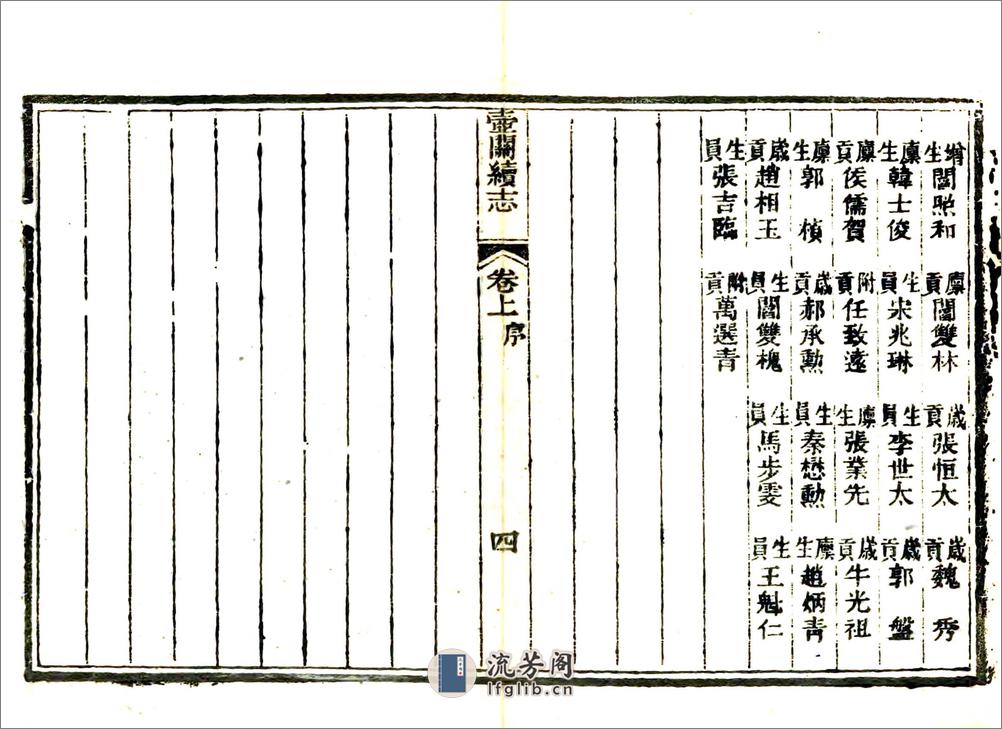 增生閻照和 廩貢閻雙林 歲貢張恒太 歲貢魏秀
廩生韓士俊 生員宋兆琳 生員李世太 歲貢郭盤
廩貢侯儒賀 附貢任致遠 廩生張業先 歲貢牛光祖
廩生郭楨 歲貢郝承勳 生員秦懋勳 廩生趙炳青
歲貢趙相玉 生員閻雙槐 生員馬步雯 生員王魁仁
生員張吉臨 附貢萬選青
壺關續志 卷上 序 四
流芳阁
lfglib.cn